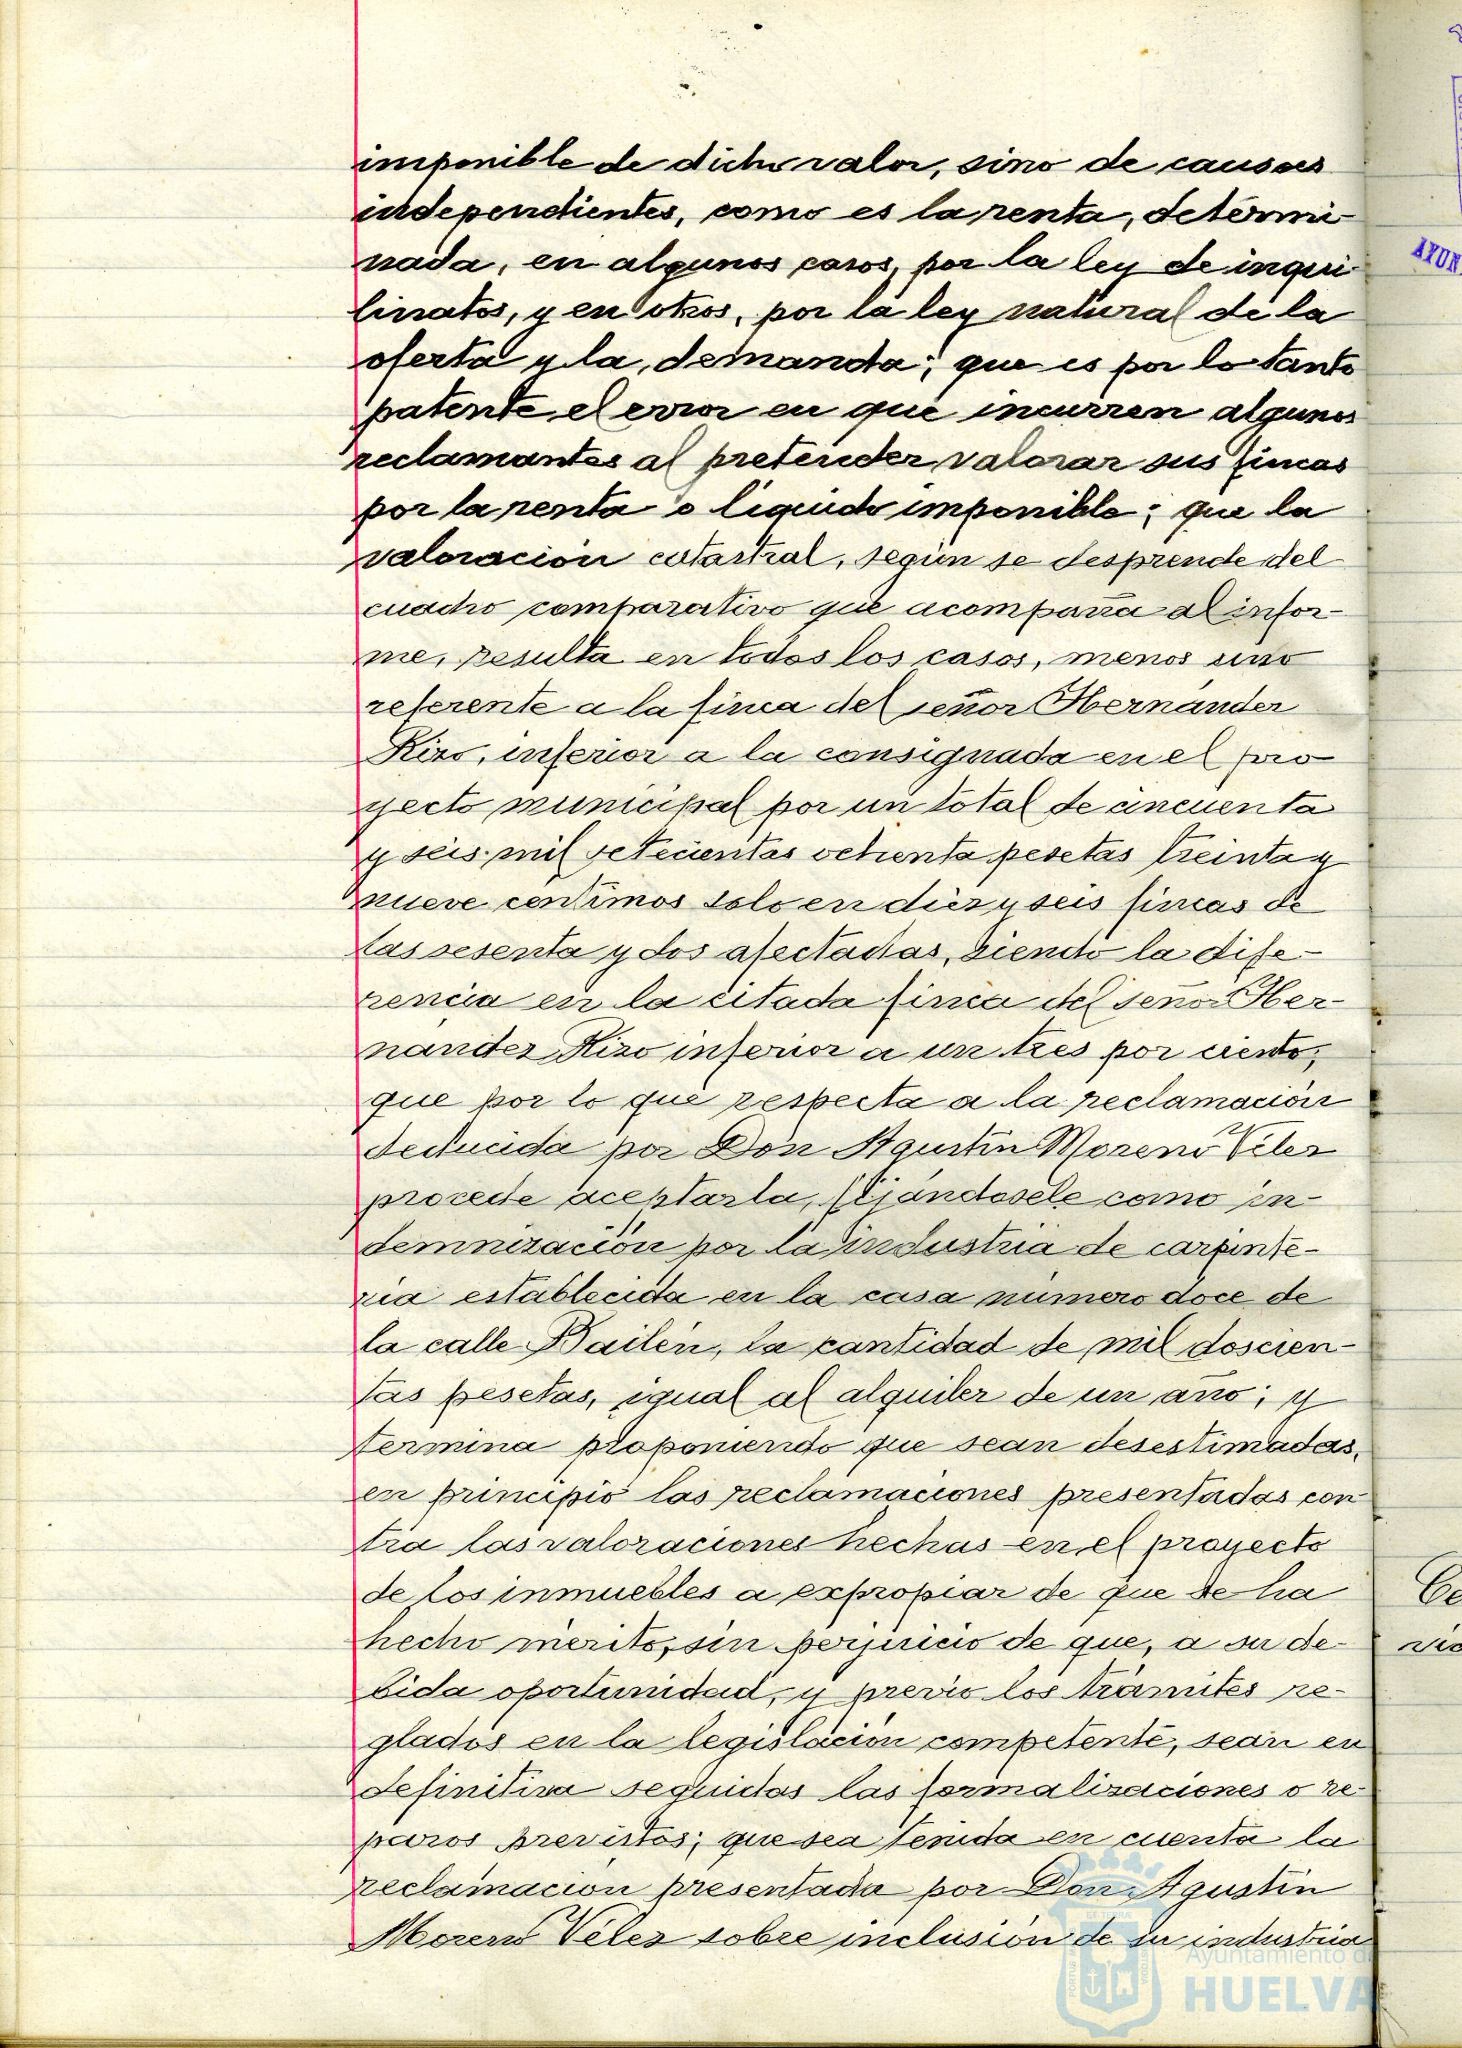 imponible de dicho valor, sino de causas
independientes, como es la renta, determi-
nada, en algunos casos, por la ley de inqui-
linatos, y en otros, por la ley natural de la
oferta y la demanda; que es por lo tanto
patente el error en que incurren algunos
reclamantes al pretender valorar sus fincas
por la renta o líquido imponible; que la
valoración catastral, según se desprende del
cuadro comparativo que acompaña al infor-
me, resulta en todos los casos, menos uno
referente a la finca del señor Hernández
Rizo, inferior a la consignada en el pro
yecto municipal por un total de cincuenta
y seis mil setecientas ochenta pesetas treinta y
nueve centimos solo en diez y seis fincas de
las sesenta y dos afectadas, siendo la dife-
rencia en la citada finca del señor Her-
nández Rizo inferior a un tres por ciento;
que por lo que respecta a la reclamación
deducida por Don Agustín Moreno Vélez
procede aceptarla, fijándosele como in-
demnización por la industria de carpinte-
ría establecida en la casa número doce de
la calle Bailén, la cantidad de mil doscien-
tas pesetas, igual al alquiler de un año; y
termina proponiendo que sean desestimadas,
en principio las reclamaciones presentadas con
tra las valoraciones hechas en el proyecto
de los inmuebles a expropiar de que se ha
hecho mérito, sin perjuicio de que, a su de-
bida oportunidad, y previo los trámites re-
glados en la legislación competente, sean en
definitiva seguidas las formalizaciones o re-
paros previstos; que sea tenida en cuenta la
reclamación presentada por Don Agustín
Moreno Vélez sobre inclusión de su industria
AYUN
Ce
vic
Ayuntamiento de
HUELVA